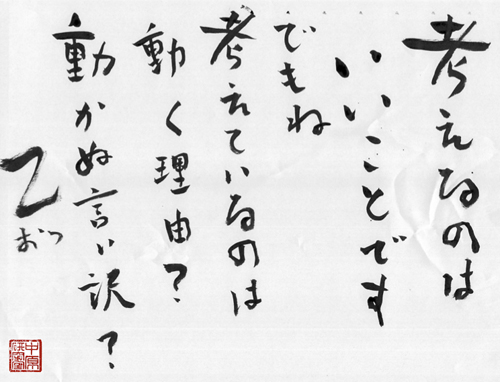 考えるのは
いいことです
でもね
考えているのは
動く理由？
動かぬ言い訳？
乙
おつ
中原